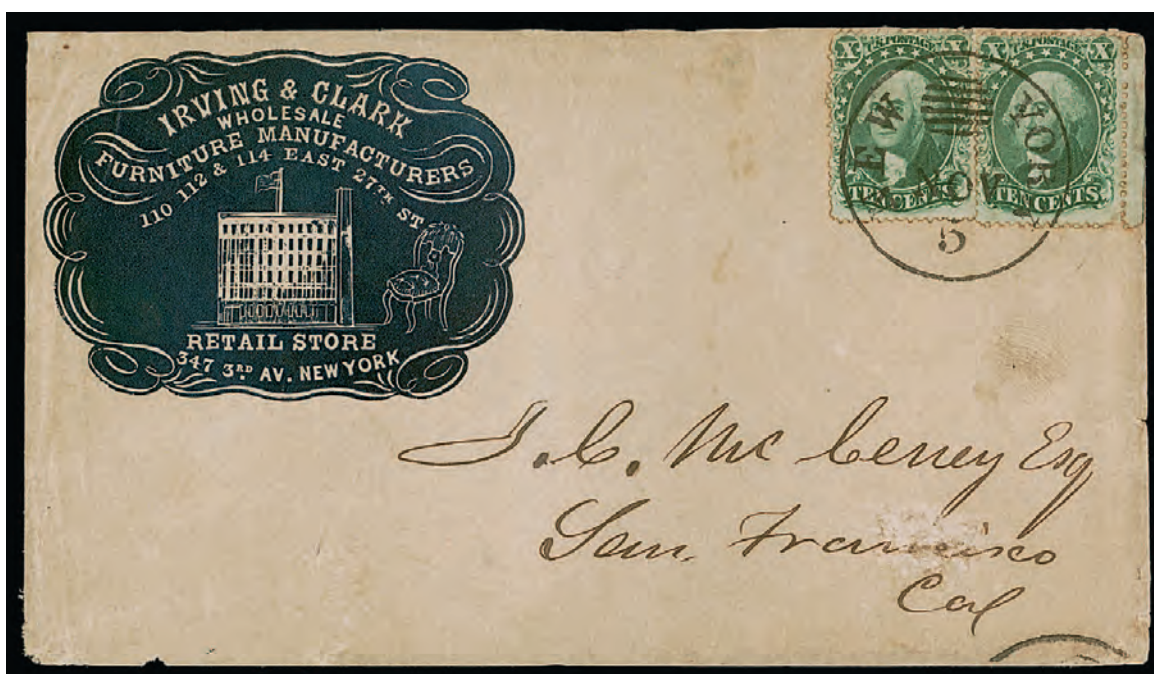 IRVING & CLARK
WHOLESALE
FURNITURE MANUFACTURERS
110 112 & 114 EAST 27TH ST
RETAIL STORE
347 3RD AV. NEW YORK
X U.S. POSTAGE X
TEN CENTS
X U.S. POSTAGE X
TEN CENTS.
NEW YORK
NOV
5
San Francisco
Cal